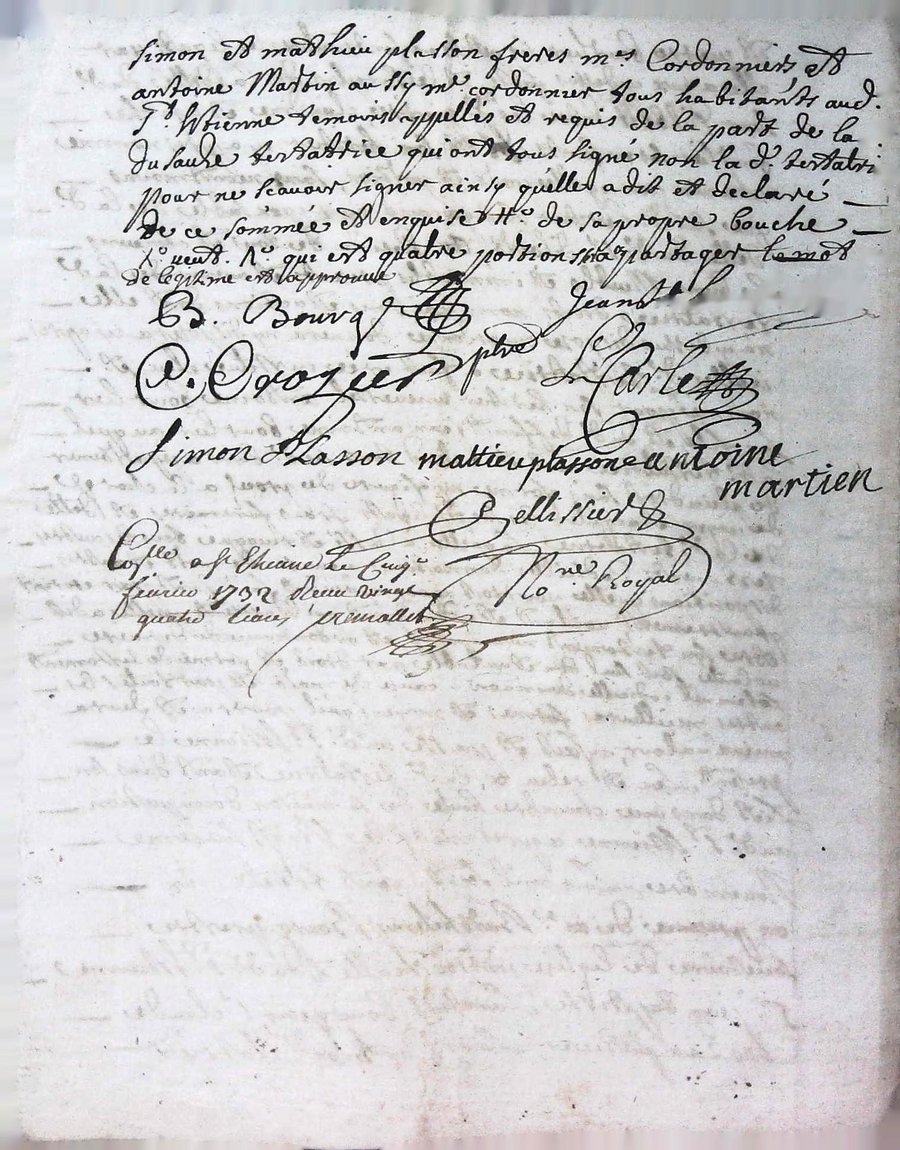 Simon et mathieu plasson freres mes Cordonniers et
antoine Martin aussy me cordonnier tous habitants aud.
St Etienne temoins appellés et requis de la part de la
du testatrice qui ont tous signé non la d. testatri
pour ne scavoir signer ainsy quelle a dit et declaré
de ce sommée et enquise de sa propre bouche
qui est quatre portions a partager le mot
de legitime est approuvé
B. Bourg
Jean
C. Crozier pbre
Carle
Simon Plasson mattieu plassone antoine
martien
Pellissier
Nore Royal
Coslle a St Etienne le Cinq
fevrier 1732 Reçu vingt
quatre